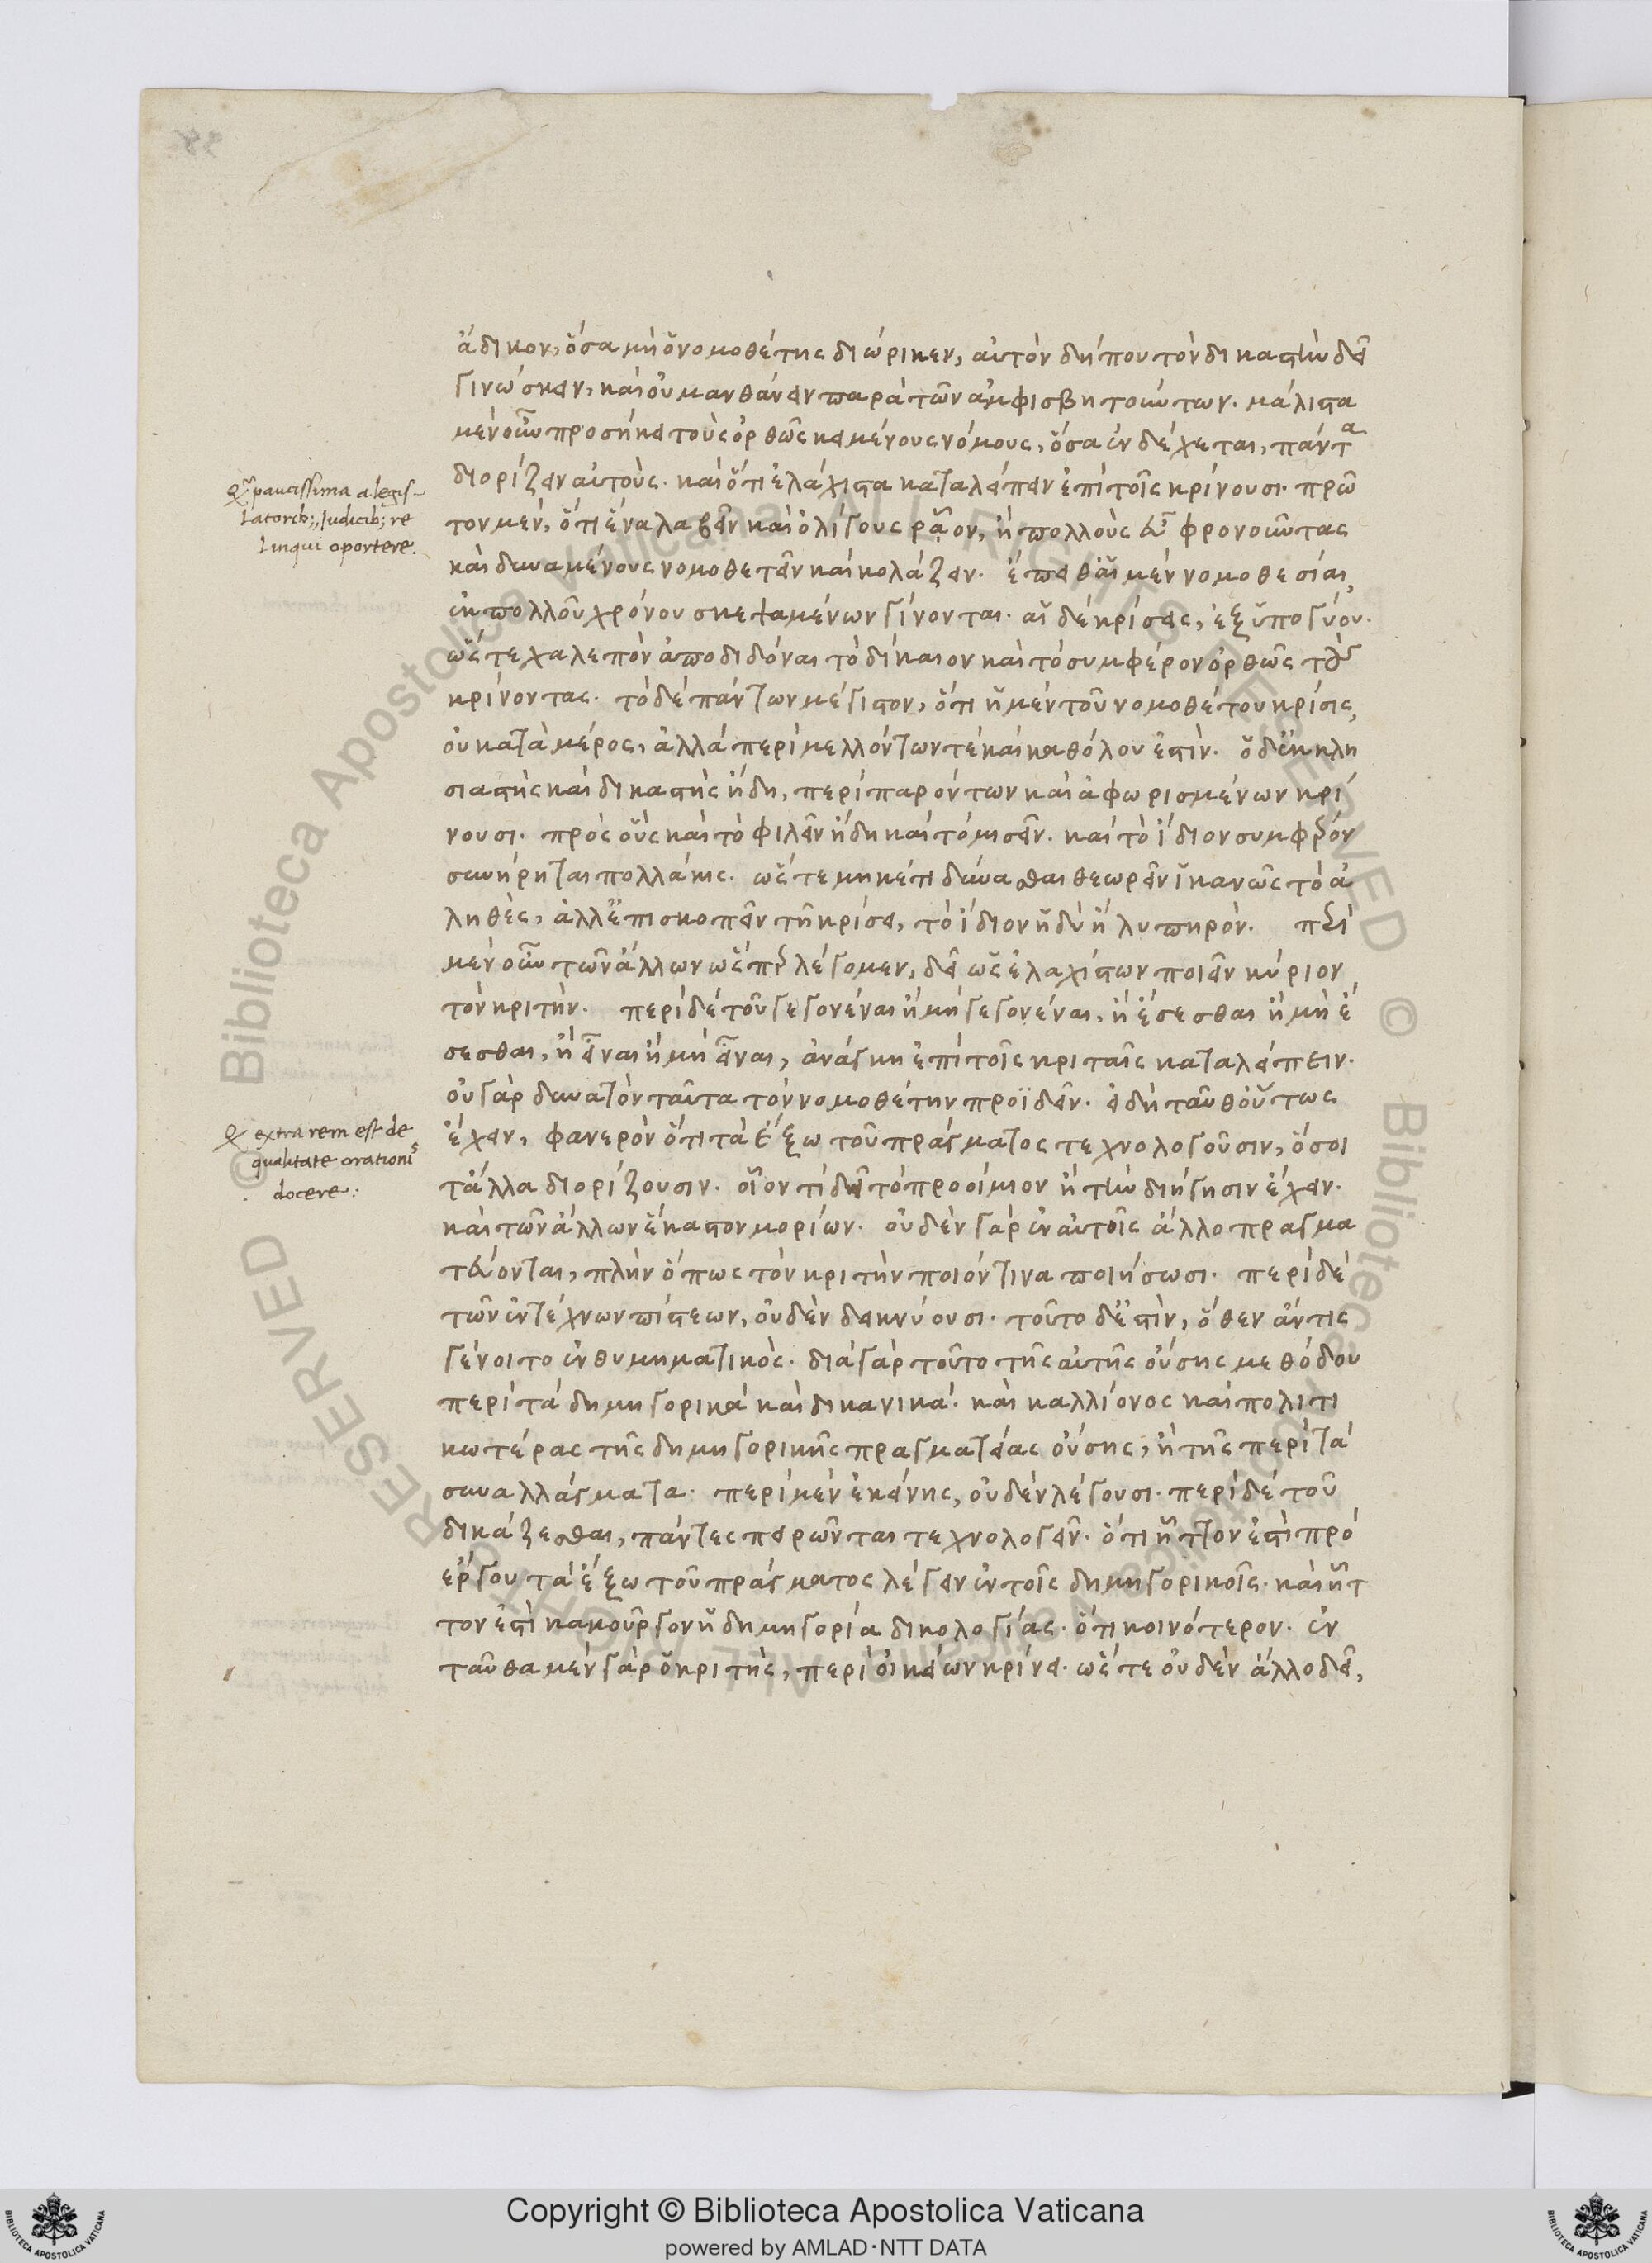 ἄδικον, ὅσα μὴ ὁ νομοθέτης διώρικεν, αὐτὸν δήπου τὸν δικαστὴν δεῖ
γινώσκειν, καὶ οὐ μανθάνειν παρὰ τῶν ἀμφισβητούντων. μάλιστα
μὲν οὖν προσήκει τοὺς ὀρθῶς κειμένους νόμους, ὅσα ἐνδέχεται, πάντα
διορίζειν αὐτούς. καὶ ὅτι ἐλάχιστα καταλείπειν ἐπὶ τοῖς κρίνουσι. πρῶ
τον μὲν, ὅτι ἕνα λαβεῖν καὶ ὀλίγους ῥᾷον, ἢ πολλοὺς εὖ φρονοῦντας
καὶ δυναμένους νομοθετεῖν καὶ κολάζειν. ἔπειθ' αἱ μὲν νομοθεσίαι,
ἐκ πολλοῦ χρόνου σκεψαμένων γίνονται. αἱ δὲ κρίσεις, ἐξ ὑπογύου.
ὥστε χαλεπὸν ἀποδιδόναι τὸ δίκαιον καὶ τὸ συμφέρον ὀρθῶς τοὺς
κρίνοντας. τὸ δὲ πάντων μέγιστον, ὅτι ἡ μὲν τοῦ νομοθέτου κρίσις,
οὐ κατὰ μέρος, ἀλλὰ περὶ μελλόντων τὲ καὶ καθόλου ἐστίν. ὁ δ' ἐκκλη
σιαστὴς καὶ δικαστὴς ἤδη, περὶ παρόντων καὶ ἀφωρισμένων κρί
νουσι. πρὸς οὓς καὶ τὸ φιλεῖν ἤδη καὶ τὸ μισεῖν. καὶ τὸ ἴδιον συμφέρον
συνήρηται πολλάκις. ὥστε μηκέτι δύνασθαι θεωρεῖν ἱκανῶς τὸ ἀ
ληθές, ἀλλ' ἐπισκοπεῖν τῇ κρίσει, τὸ ἴδιον ἡδὺ ἢ λυπηρόν. περὶ
μὲν οὖν τῶν ἄλλων ὥσπερ λέγομεν, δεῖ ὡς ἐλαχίστων ποιεῖν κύριον
τὸν κριτήν. περὶ δὲ τοῦ γεγονέναι ἢ μὴ γεγονέναι, ἢ ἔσεσθαι ἢ μὴ ἔ
σεσθαι, ἢ εἶναι ἢ μὴ εἶναι, ἀνάγκη ἐπὶ τοῖς κριταῖς καταλείπειν.
οὐ γὰρ δυνατὸν ταῦτα τὸν νομοθέτην προϊδεῖν. εἰ δὴ ταῦθ' οὕτως
ἔχει, φανερὸν ὅτι τὰ ἔξω τοῦ πράγματος τεχνολογοῦσιν, ὅσοι
τἄλλα διορίζουσιν. οἷον τί δεῖ τὸ προοίμιον ἢ τὴν διήγησιν ἔχειν.
καὶ τῶν ἄλλων ἕκαστον μορίων. οὐδὲν γὰρ ἐν αὐτοῖς ἄλλο πραγμα
τεύονται, πλὴν ὅπως τὸν κριτὴν ποιόν τινα ποιήσωσι. περὶ δὲ
τῶν ἐντέχνων πίστεων, οὐδὲν δεικνύουσι. τοῦτο δ' ἐστὶν, ὅθεν ἄν τις
γένοιτο ἐνθυμηματικός. διὰ γὰρ τοῦτο τῆς αὐτῆς οὔσης μεθόδου
περὶ τὰ δημηγορικὰ καὶ δικανικά. καὶ καλλίονος καὶ πολιτι
κωτέρας τῆς δημηγορικῆς πραγματείας οὔσης, ἢ τῆς περὶ τὰ
συναλλάγματα. περὶ μὲν ἐκείνης, οὐδὲν λέγουσι. περὶ δὲ τοῦ
δικάζεσθαι, πάντες πειρῶνται τεχνολογεῖν. ὅτι ἧττον ἐστὶ πρὸ
ἔργου τὰ ἔξω τοῦ πράγματος λέγειν ἐν τοῖς δημηγορικοῖς. καὶ ἧτ
τον ἐστὶ κακοῦργον ἡ δημηγορία δικολογίας. ὅτι κοινότερον. ἐν
ταῦθα μὲν γὰρ ὁ κριτὴς, περὶ οἰκείων κρίνει. ὥστε οὐδὲν ἄλλο δεῖ,
paucissima a legis-
latorib; Judicib; re
linqui oportere.
extra rem est de
qualitate orationis
docere:
© Biblioteca Apostolica Vaticana ALL RIGHTS RESERVED
Copyright © Biblioteca Apostolica Vaticana
powered by AMLAD·NTT DATA
BIBLIOTECA APOSTOLICA VATICANA
BIBLIOTECA APOSTOLICA VATICANA